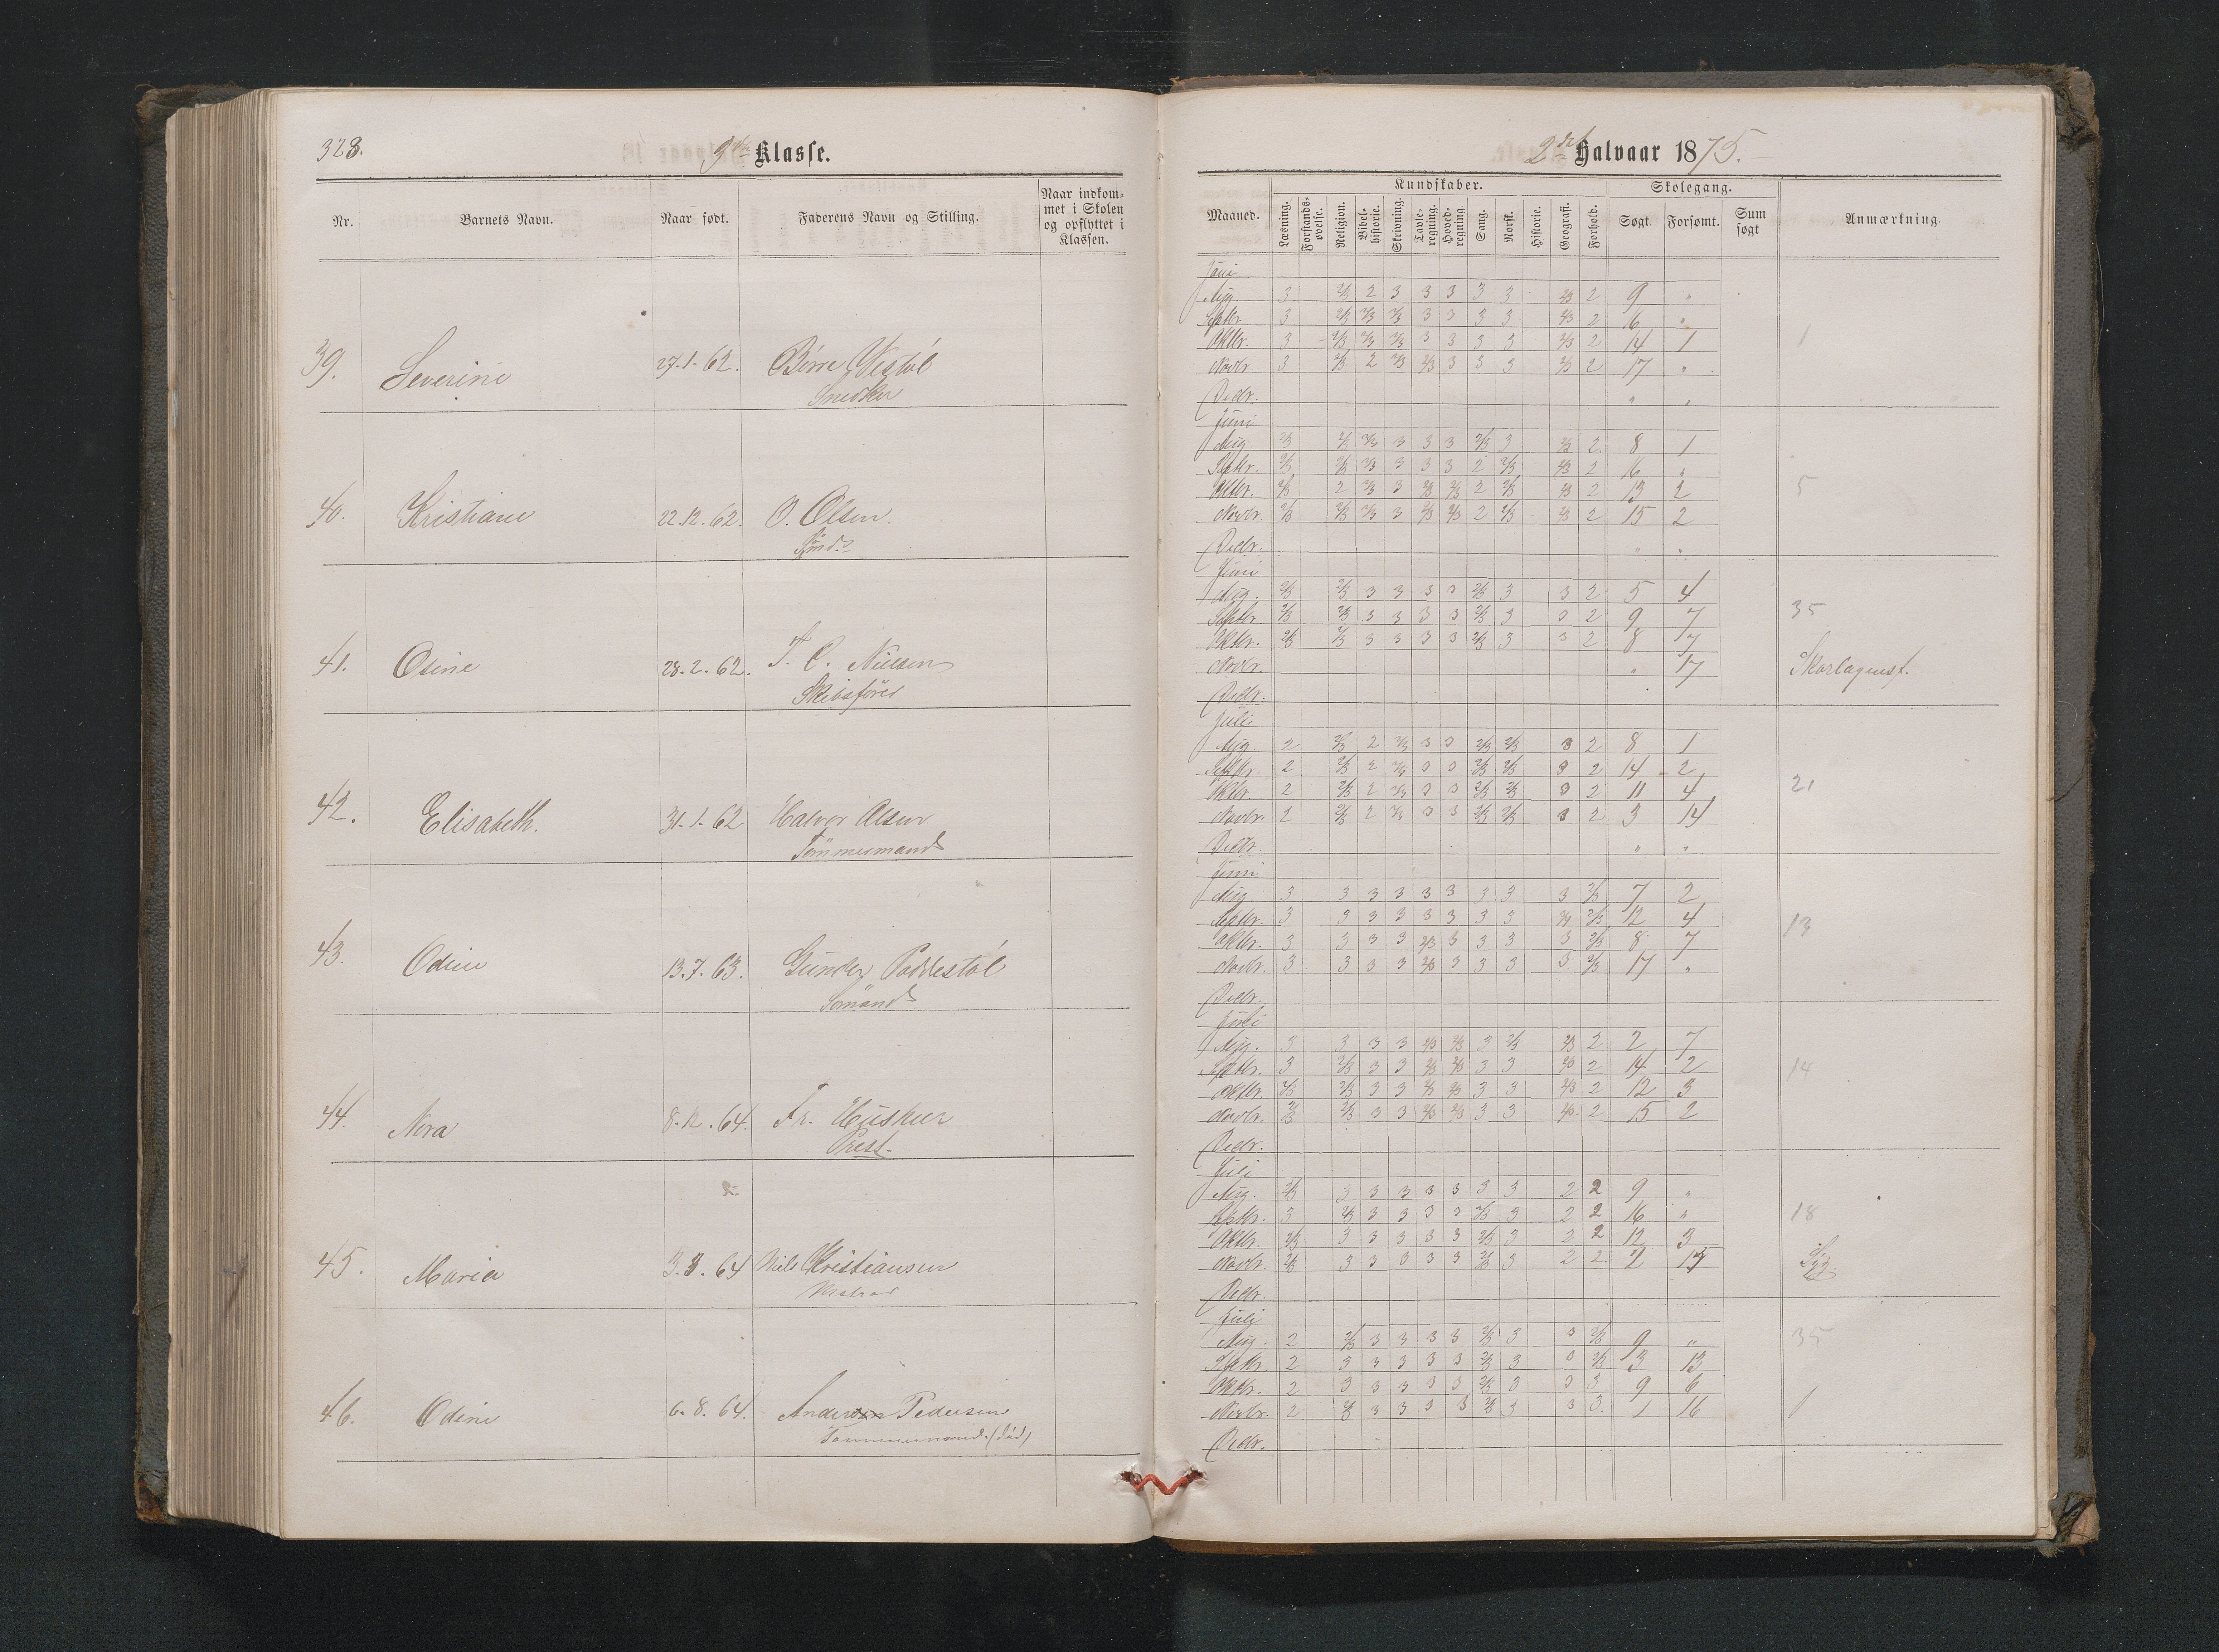 328.
3die Klasse.
Nr. Barnets Navn. Naar født. Faderens Navn og Stilling. Naar indkommet i Skolen og opflyttet i Klassen.
39. Severine 27-1-62. Børre Vestøl
Snedker
40. Kristiane 22.12.62. O. Olsen.
41. Osine 28.2.62. T. C. Nielsen
Skibsfører
42. Elisabeth. 31-1-62 Halvor Olsen
Tømmermand
43. Odine 13.7.63. Gunder Poddestøl
Sømand
44. Nora 8.12.64. Fr.
Prest.
45. Maria 3.3.64 Niels Kristiansen
Matros
46. Odine 6.8.64. Anders Pedersen
Tømmermand. (død)
2det Halvaar 1875.
Maaned. Kundskaber. Skolegang. Anmærkning.
Læsning. Forstandsøvelse. Religion. Bibelhistorie. Skrivning. Tavleregning. Hovedregning. Sang. Norsk. Historie. Geografi. Forhold. Søgt. Forsømt. Sum søgt
Juni
Aug. 3 2/3 2 3 3 3 3 3 2/3 2 9 "
Septbr. 3 2/3 2/3 2/3 3 3 3 3 2/3 2 16 "
Oktbr. 3 2/3 2/3 2/3 3 3 3 3 2/3 2 14 1 1
Novbr. 3 2/3 2 2/3 2/3 3 3 3 2/3 2 17 "
Decbr. " "
Juni
Aug. 2/3 2/3 2/3 3 3 3 2/3 3 2/3 2 8 1
Septbr. 2/3 2/3 2/3 3 3 3 2 2/3 2/3 2 16 "
Oktbr. 2/3 2 2/3 3 2/3 2/3 2 2/3 2/3 2 13 2 5
Novbr. 2/3 2/3 2/3 3 2/3 2/3 2 2/3 2/3 2 15 2
Decbr. " "
Juni
Aug. 2/3 2/3 3 3 3 3 2/3 3 3 2 5 4
Septbr. 2/3 2/3 3 3 3 3 2/3 3 3 2 9 7 35
Oktbr. 2/3 2/3 3 3 3 3 2/3 3 3 2 8 7
Novbr. " 17 Skarlagensf.
Decbr.
Juli
Aug. 2 2/3 2 2/3 3 3 2/3 2/3 3 2 8 1
Septbr. 2 2/3 2 2/3 3 3 2/3 2/3 3 2 14 2
Oktbr. 2 2/3 2 2/3 3 3 2/3 2/3 3 2 11 4 21
Novbr. 2 2/3 2 2/3 3 3 2/3 2/3 3 2 3 14
Decbr. " "
Juni
Aug. 3 3 3 3 3 3 3 3 3 2/3 7 2
Septbr. 3 3 3 3 3 3 3 3 2/3 12 4 13
Oktbr. 3 3 3 3 2/3 3 3 3 3 2/3 8 7
Novbr. 3 3 3 3 2/3 3 3 3 3 2/3 17 "
Decbr.
Juli
Aug. 3 3 3 3 2/3 2/3 3 2/3 2/3 2 2 7
Septbr. 3 2/3 3 3 2/3 2/3 3 3 2/3 2 14 2 14
Oktbr. 2/3 2/3 3 3 2/3 2/3 3 3 2/3 2 12 3
Novbr. 2/3 2/3 3 3 2/3 2/3 3 3 2/3 2 15 2
Decbr.
Juli
Aug. 2/3 3 3 3 3 3 3 3 2 2 9 "
Septbr. 3 2/3 3 3 3 3 2/3 3 2 2 16 " 18
Oktbr. 2/3 3 3 3 3 3 2/3 3 2 2 12 3
Novbr. 2/3 3 3 3 3 3 2/3 3 2 2 2 15 Syg.
Decbr.
Juli
Aug. 2 2/3 3 3 3 3 2/3 3 3 2/3 9 " 35
Septbr. 2 3 3 3 3 3 2/3 3 3 2/3 3 13
Oktbr. 2 3 3 3 3 3 2/3 3 3 3 9 6
Novbr. 2 2/3 3 3 3 3 2/3 3 3 3 1 16 1
Decbr.